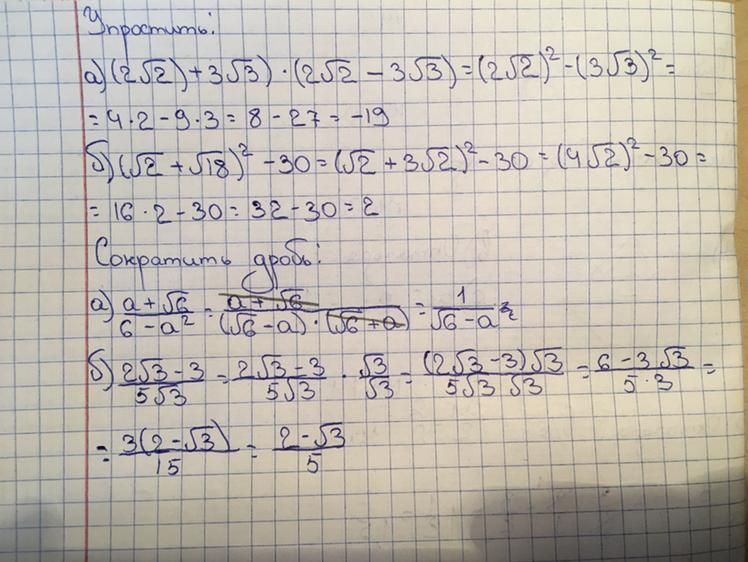 Упростить:
а) (2√2) + 3√3) · (2√2 − 3√3) = (2√2)² − (3√3)² =
= 4·2 − 9·3 = 8 − 27 = −19
б) (√2 + √18)² − 30 = (√2 + 3√2)² − 30 = (4√2)² − 30 =
= 16·2 − 30 = 32 − 30 = 2
Сократить дробь:
а) (a + √6)/(6 − a²) = (a + √6)/((√6 − a)·(√6 + a)) = 1/(√6 − a)
б) (2√3 − 3)/(5√3) = (2√3 − 3)/(5√3) · √3/√3 = ((2√3 − 3)√3)/(5√3 √3) = (6 − 3√3)/(5·3) =
= (3(2 − √3))/15 = (2 − √3)/5